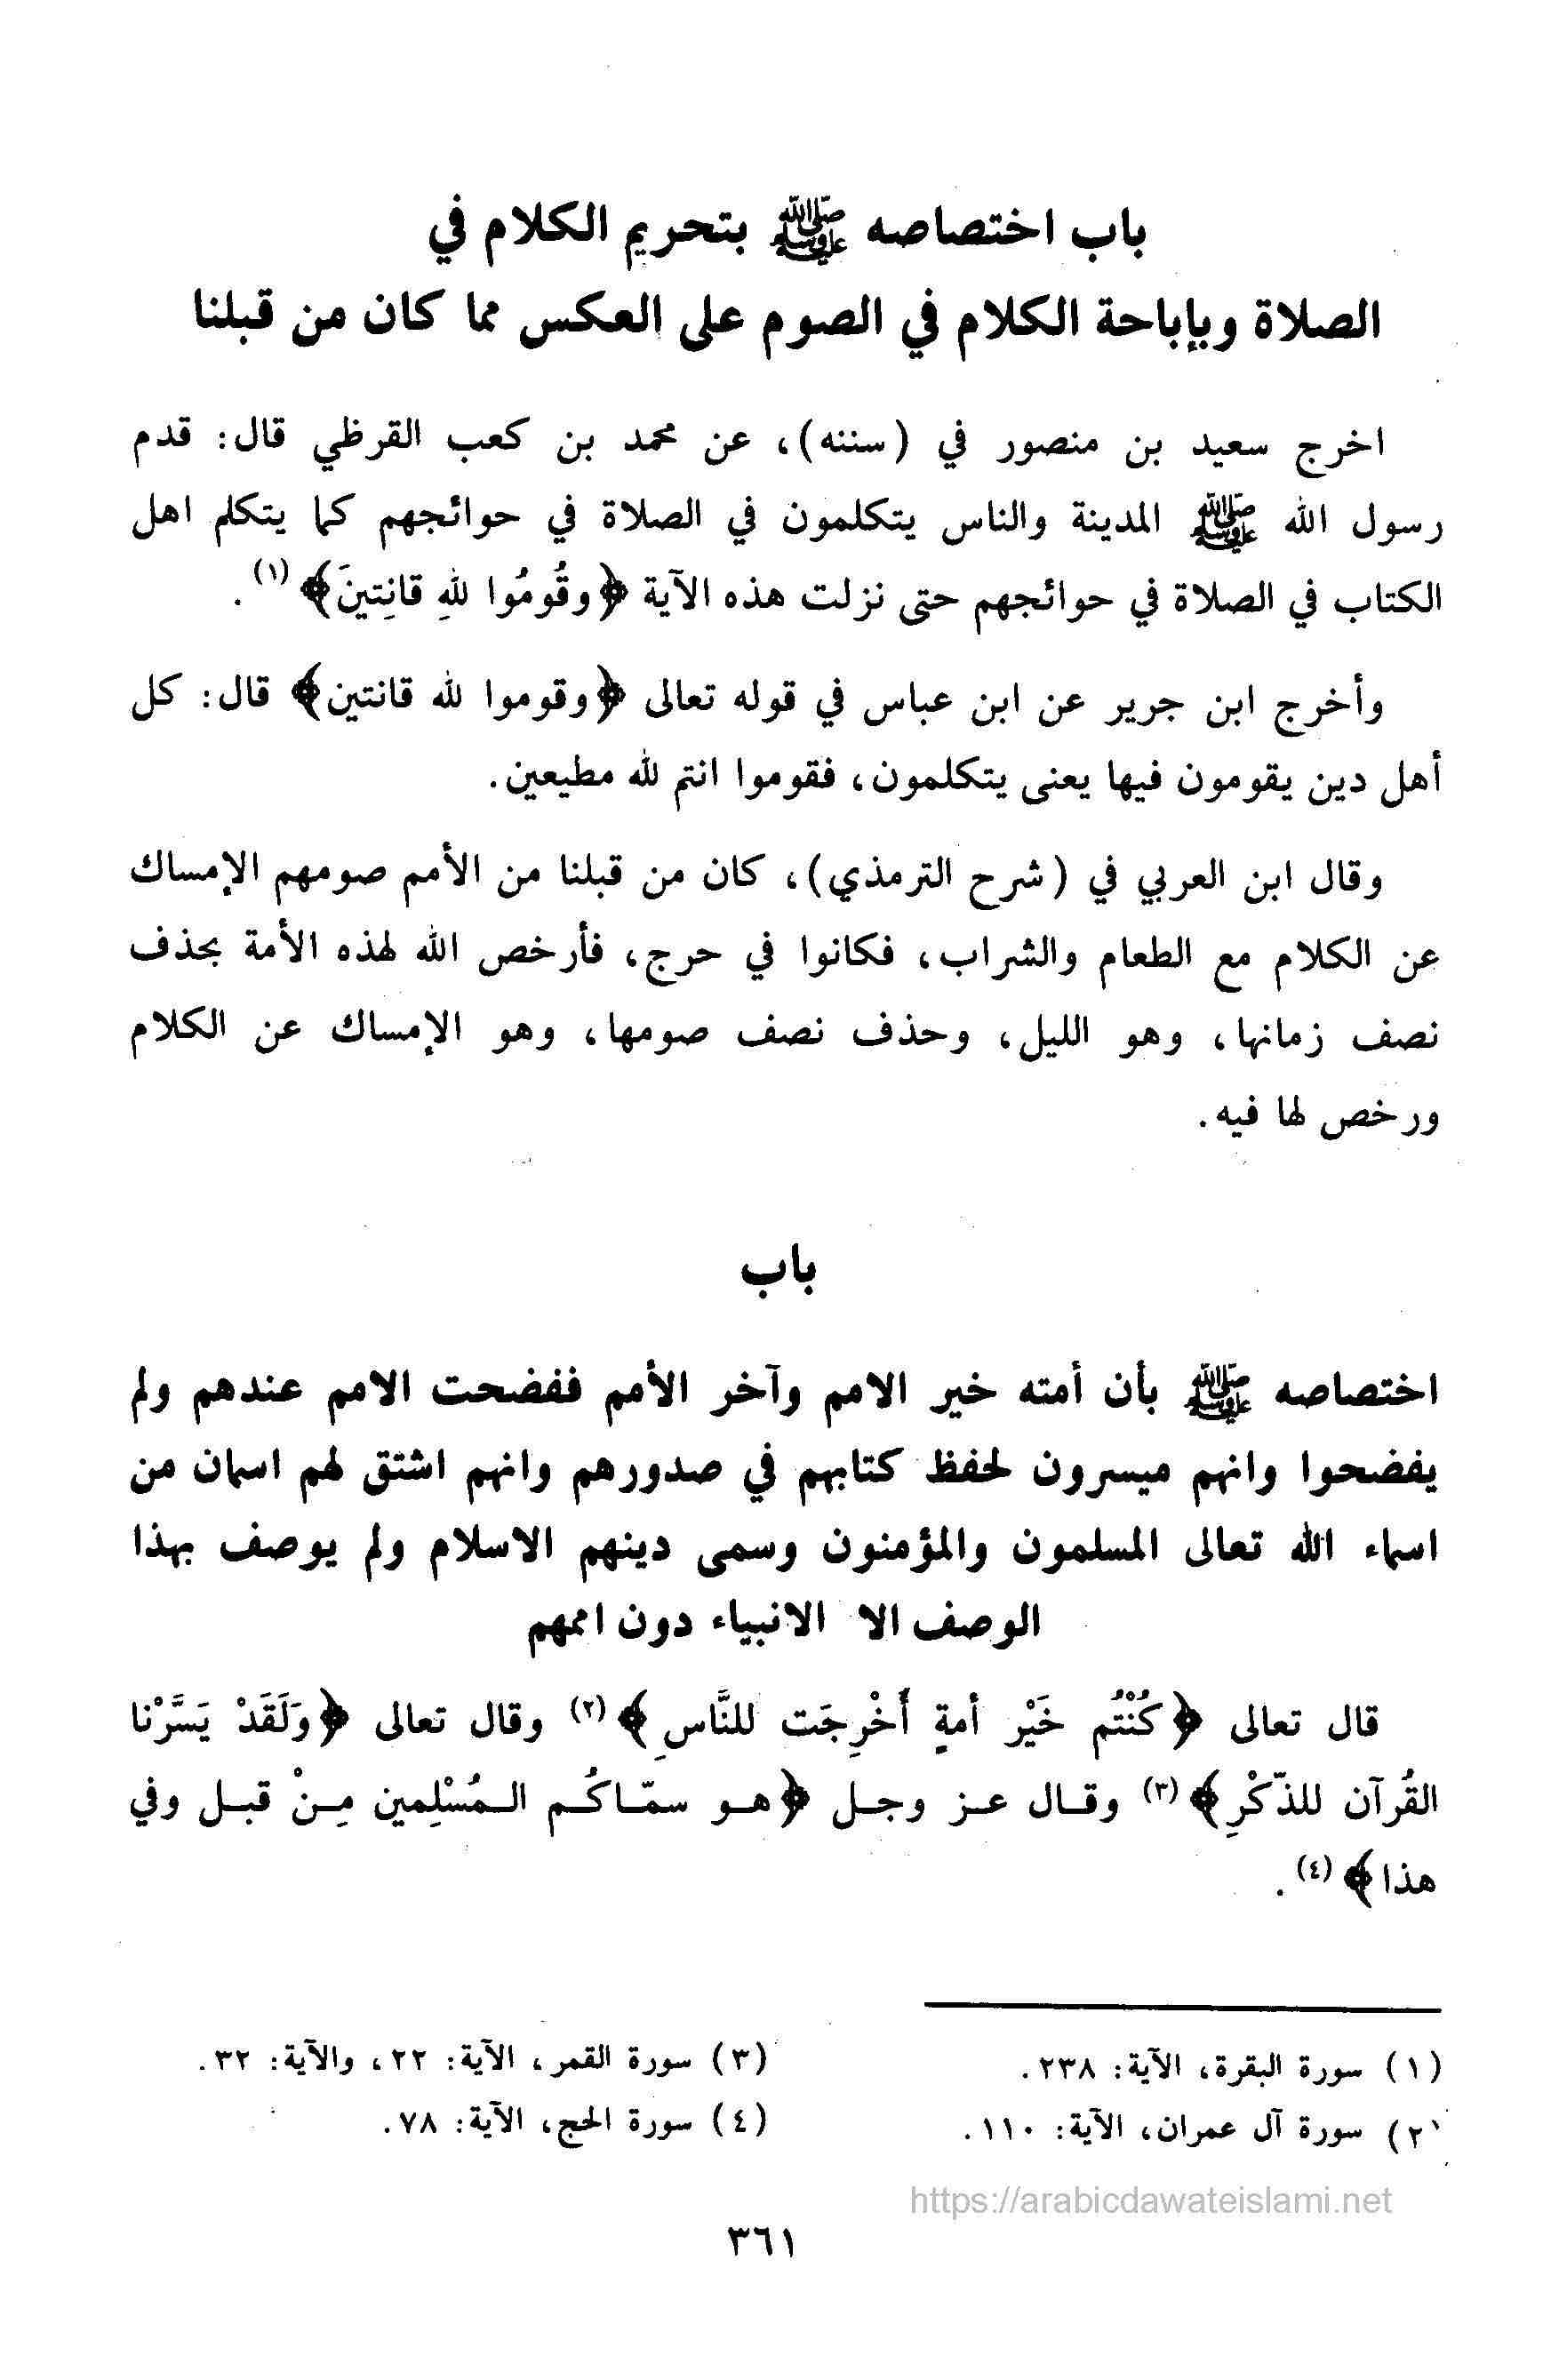 باب اختصاصه ﷺ بتحريم الكلام في
الصلاة وبإباحة الكلام في الصوم على العكس مما كان من قبلنا
اخرج سعيد بن منصور في (سننه)، عن محمد بن كعب القرظي قال: قدم
رسول الله ﷺ المدينة والناس يتكلمون في الصلاة في حوائجهم كما يتكلم اهل
الكتاب في الصلاة في حوائجهم حتى نزلت هذه الآية ﴿وقُومُوا للهِ قانِتينَ﴾ (١).
وأخرج ابن جرير عن ابن عباس في قوله تعالى ﴿وقوموا لله قانتين﴾ قال: كل
أهل دين يقومون فيها يعنى يتكلمون، فقوموا انتم لله مطيعين.
وقال ابن العربي في (شرح الترمذي)، كان من قبلنا من الأمم صومهم الإمساك
عن الكلام مع الطعام والشراب، فكانوا في حرج، فأرخص الله لهذه الأمة بحذف
نصف زمانها، وهو الليل، وحذف نصف صومها، وهو الإمساك عن الكلام
ورخص لها فيه.
باب
اختصاصه ﷺ بأن أمته خير الامم وآخر الأمم ففضحت الامم عندهم ولم
يفضحوا وانهم ميسرون لحفظ كتابهم في صدورهم وانهم اشتق لهم اسمان من
اسماء الله تعالى المسلمون والمؤمنون وسمى دينهم الاسلام ولم يوصف بهذا
الوصف الا الانبياء دون اممهم
قال تعالى ﴿كُنْتُم خَيْر أمةٍ أُخْرِجَت للنَّاسِ﴾ (٢) وقال تعالى ﴿وَلَقَدْ يَسَّرْنا
القُرآن للذّكْرِ﴾ (٣) وقال عز وجل ﴿هو سمّاكُم المُسْلِمين مِنْ قبل وفي
هذا﴾ (٤).
(١) سورة البقرة، الآية: ٢٣٨.
(٢) سورة آل عمران، الآية: ١١٠.
(٣) سورة القمر، الآية: ٢٢، والآية: ٣٢.
(٤) سورة الحج، الآية: ٧٨.
https://arabicdawateislami.net
٣٦١